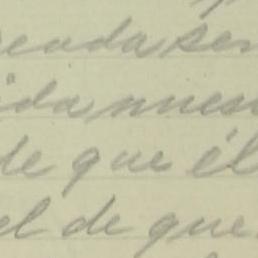 enda ser
ida nues
de que él
el de que